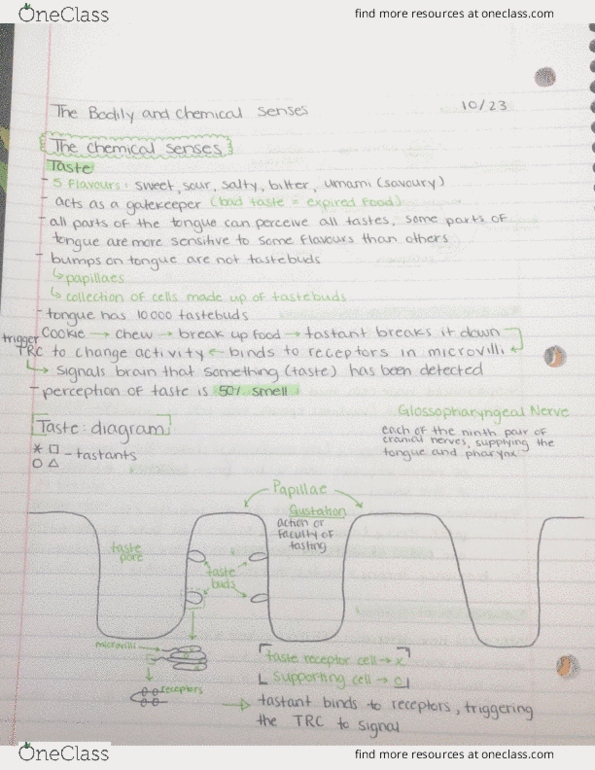 OneClass
find more resources at oneclass.com
The Bodily and chemical senses
10/23
The chemical senses
Taste
- 5 Flavours: sweet, sour, salty, bitter, umami (savoury)
- acts as a gatekeeper (bad taste = expired food)
- all parts of the tongue can perceive all tastes, some parts of
tongue are more sensitive to some flavours than others
- bumps on tongue are not tastebuds
↳ papillaes
↳ collection of cells made up of tastebuds
- tongue has 10 000 tastebuds
Cookie → chew → break up food → tastant breaks it down
trigger
TRC to change activity ← binds to receptors in microvilli
↳ signals brain that something (taste) has been detected
- perception of taste is 50% smell
Glossopharyngeal Nerve
each of the ninth pair of
cranial nerves, supplying the
tongue and pharynx
Taste: diagram
* □
○ △ - tastants
Papillae
Gustation
action or
faculty of
tasting
taste
pore
taste
buds
microvilli
receptors
taste receptor cell → x
supporting cell → c
→ tastant binds to receptors, triggering
the TRC to signal
OneClass
find more resources at oneclass.com